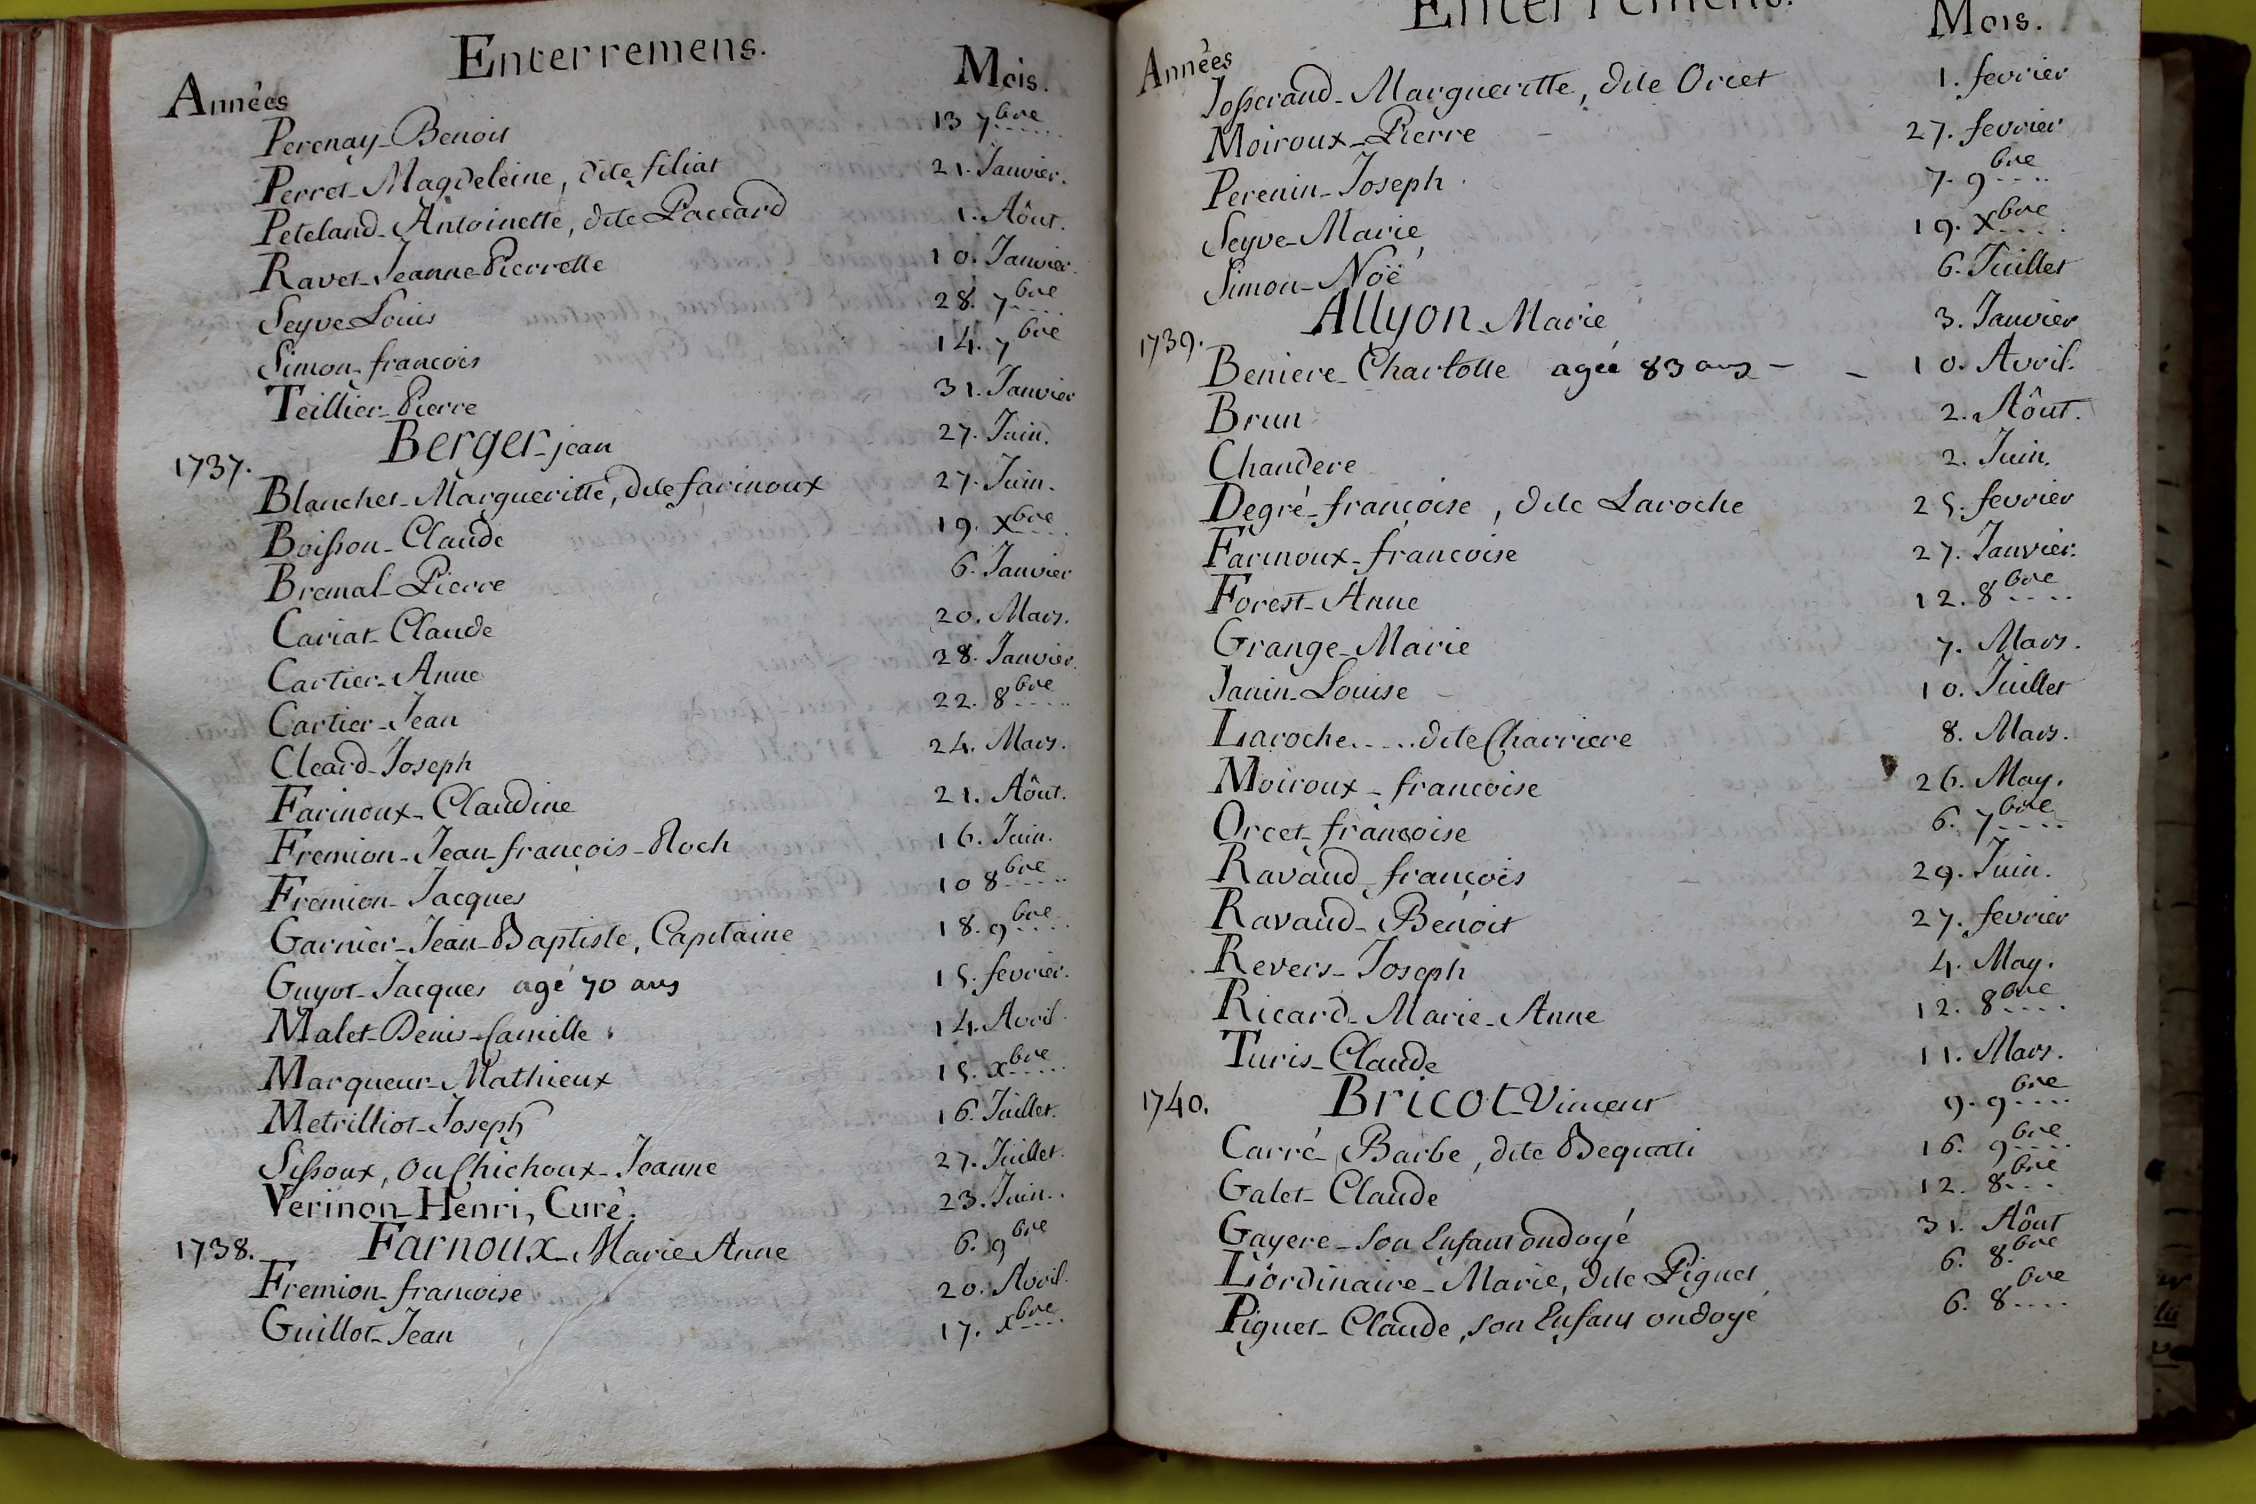 Enterremens.
Années Mois.
Perenay-Benoit 13 7bre
Perret-Magdeleine, dite filiat 21. Janvier.
Peteland-Antoinette, dite Paccard 1. Aôut.
Ravet-Jeanne-Pierrette 10. Janvier.
Seyve-Louis 28. 7bre
Simon-francois 14. 7bre
Teillier-Pierre 31. Janvier
1737. Berger-jean 27. Juin.
Blanchet-Margueritte, dite farinoux 27. Juin.
Boisson-Claude 19. Xbre
Bremal-Pierre 6. Janvier
Cariat-Claude 20. Mars.
Cartier-Anne 28. Janvier.
Cartier-Jean 22. 8bre
Cleard-Joseph 24. Mars.
Farinoux-Claudine 21. Aôut.
Fremion-Jean-françois-Roch 16. Juin.
Fremion-Jacques 10 8bre
Garnier-Jean-Baptiste, Capitaine 18. 9bre
Guyot-Jacques agé 70 ans 15. fevrier.
Malet-Denis-Camille 14. Avril.
Marqueur-Mathieux 15. xbre
Metrilliot-Joseph 16. Juillet.
Sissoux, ou Chichoux-Jeanne 27. Juillet.
Verinon-Henri, Curé. 23. Juin.
1738. Farnoux-Marie-Anne 6. 9bre
Fremion-francoise 20. Avril.
Guillot-Jean 17. xbre
Enterremens.
Années Mois.
Josserand-Margueritte, dite Orcet 1. fevrier
Moiroux-Pierre 27. fevrier
Perenin-Joseph 7. 9bre
Seyve-Marie 19. Xbre
Simon-Noë 6. Juillet
1739. Allyon-Marie 3. Janvier
Beniere-Charlotte agée 83 ans 10. Avril.
Brun 2. Aôut.
Chandere 2. Juin.
Degré-françoise, dite Laroche 25. fevrier
Farinoux-francoise 27. Janvier.
Forest-Anne 12. 8bre
Grange-Marie 7. Mars.
Janin-Louise 10. Juillet
Laroche.....dite Charriere 8. Mars.
Moiroux-francoise 26. May.
Orcet-francoise 6. 7bre
Ravaud-françois 29. Juin.
Ravaud-Benoit 27. fevrier
Revers-Joseph 4. May.
Ricard-Marie-Anne 12. 8bre
Turis-Claude 11. Mars.
1740. Bricot-Vincent 9. 9bre
Carré-Barbe, dite Bequati 16. 9bre
Galet-Claude 12. 8bre
Gayere-son Enfant ondoyé 31. Aôut
L'ordinaire-Marie, dite Piguet 6. 8.bre
Piguet-Claude, son Enfant ondoyé 6. 8bre